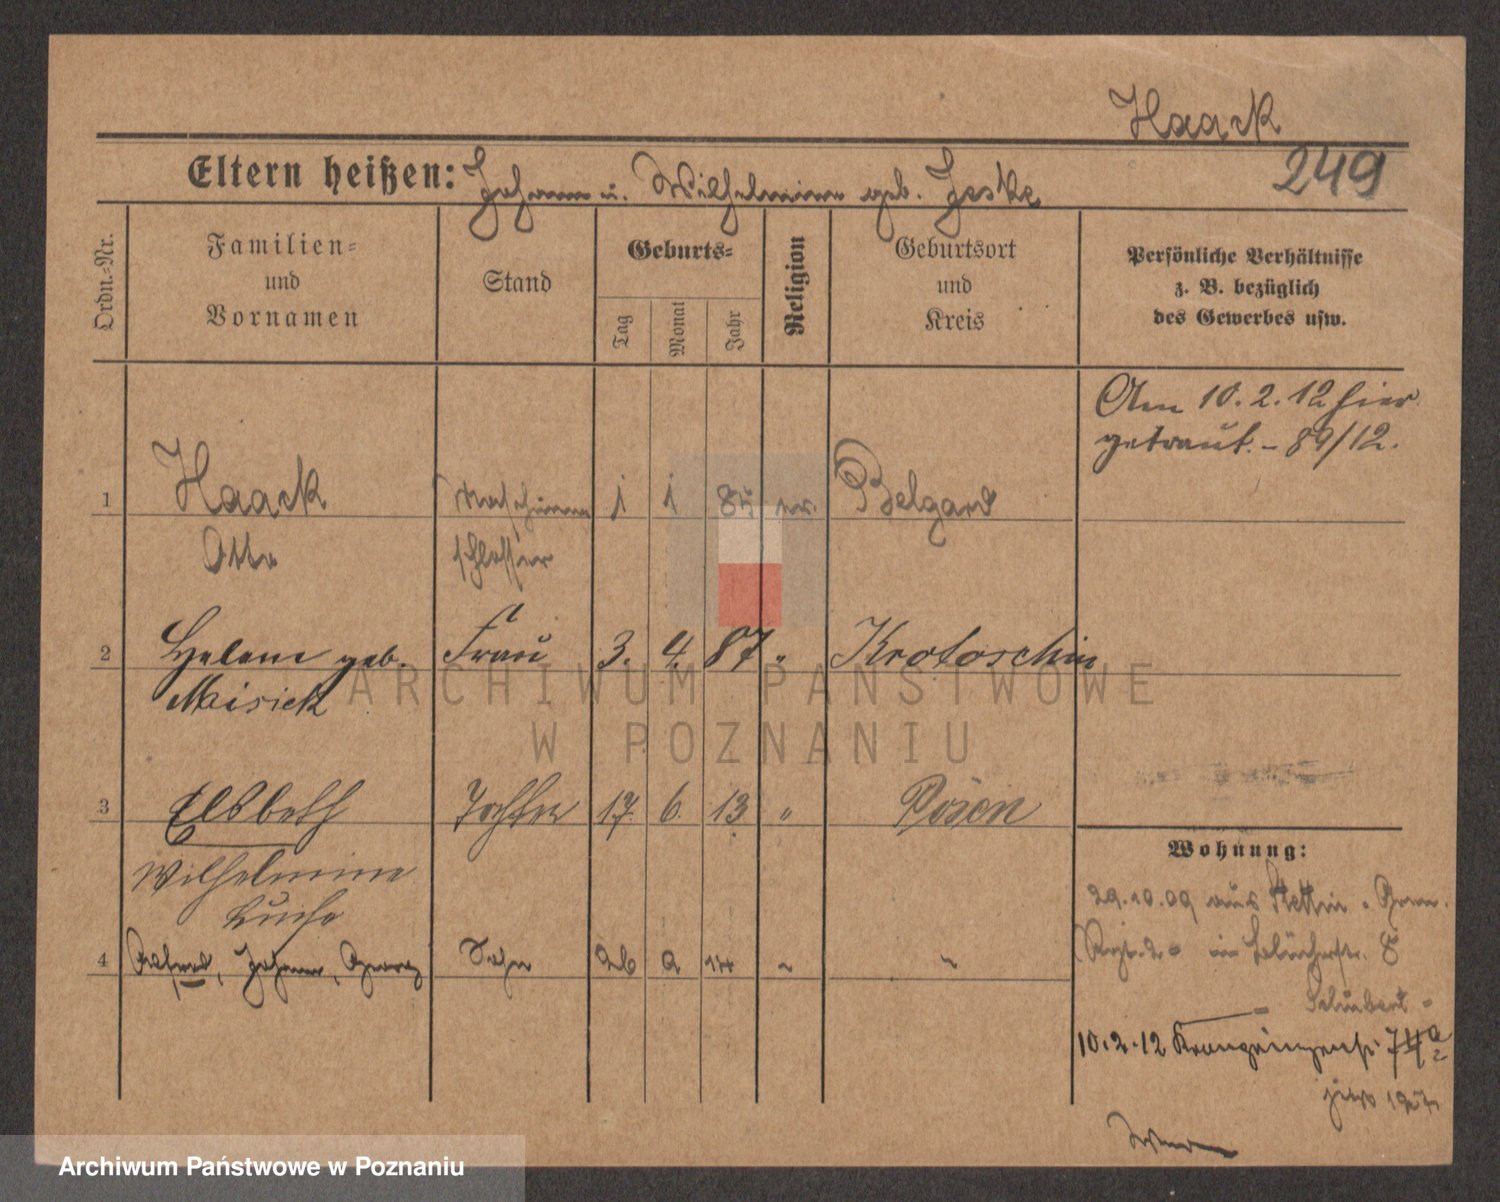 Haack
249
Eltern heißen: Johann u. Wilhelmine geb. Jeske
Ordn.-Nr.
Familien-
und
Vornamen
Stand
Geburts-
Tag
Monat
Jahr
Religion
Geburtsort
und
Kreis
Persönliche Verhältnisse
z. B. bezüglich
des Gewerbes usw.
Am 10.2.12 hier
getraut. - 89/12.
1 Haack Maschinen 1 1 85 ev. Belgard
Otto schlosser
2 Helene geb. Frau 3. 4. 87 " Krotoschin
Misiek
3 Elsbeth Tochter 17. 6. 13 " Posen
Wilhelmine
Luise
4 Alfred, Johann, Georg Sohn 26 9 14 " "
Wohnung:
29.10.09 aus Stettin - Gren.
Regt. 2 - in Blücherstr. 8
Schubert -
10.2.12 Kronprinzenstr. 74a
ARCHIWUM PAŃSTWOWE
W POZNANIU
Archiwum Państwowe w Poznaniu